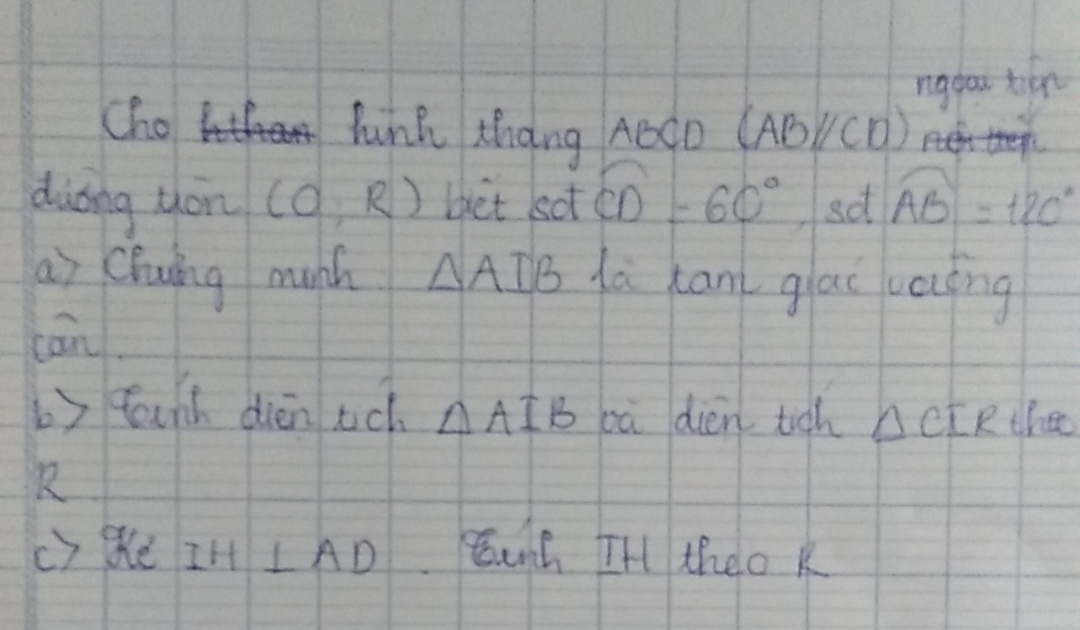 ngoại tiếp
Cho hình thang ABCD (AB//CD)
đường tròn (O, R) biết sđ CD = 60°, sđ AB = 120°
a> Chứng minh ΔAIB là tam giác vuông
cân.
b> Tính diện tích ΔAIB và diện tích ΔCIR theo
R
c> Kẻ IH ⊥ AD. Tính IH theo R